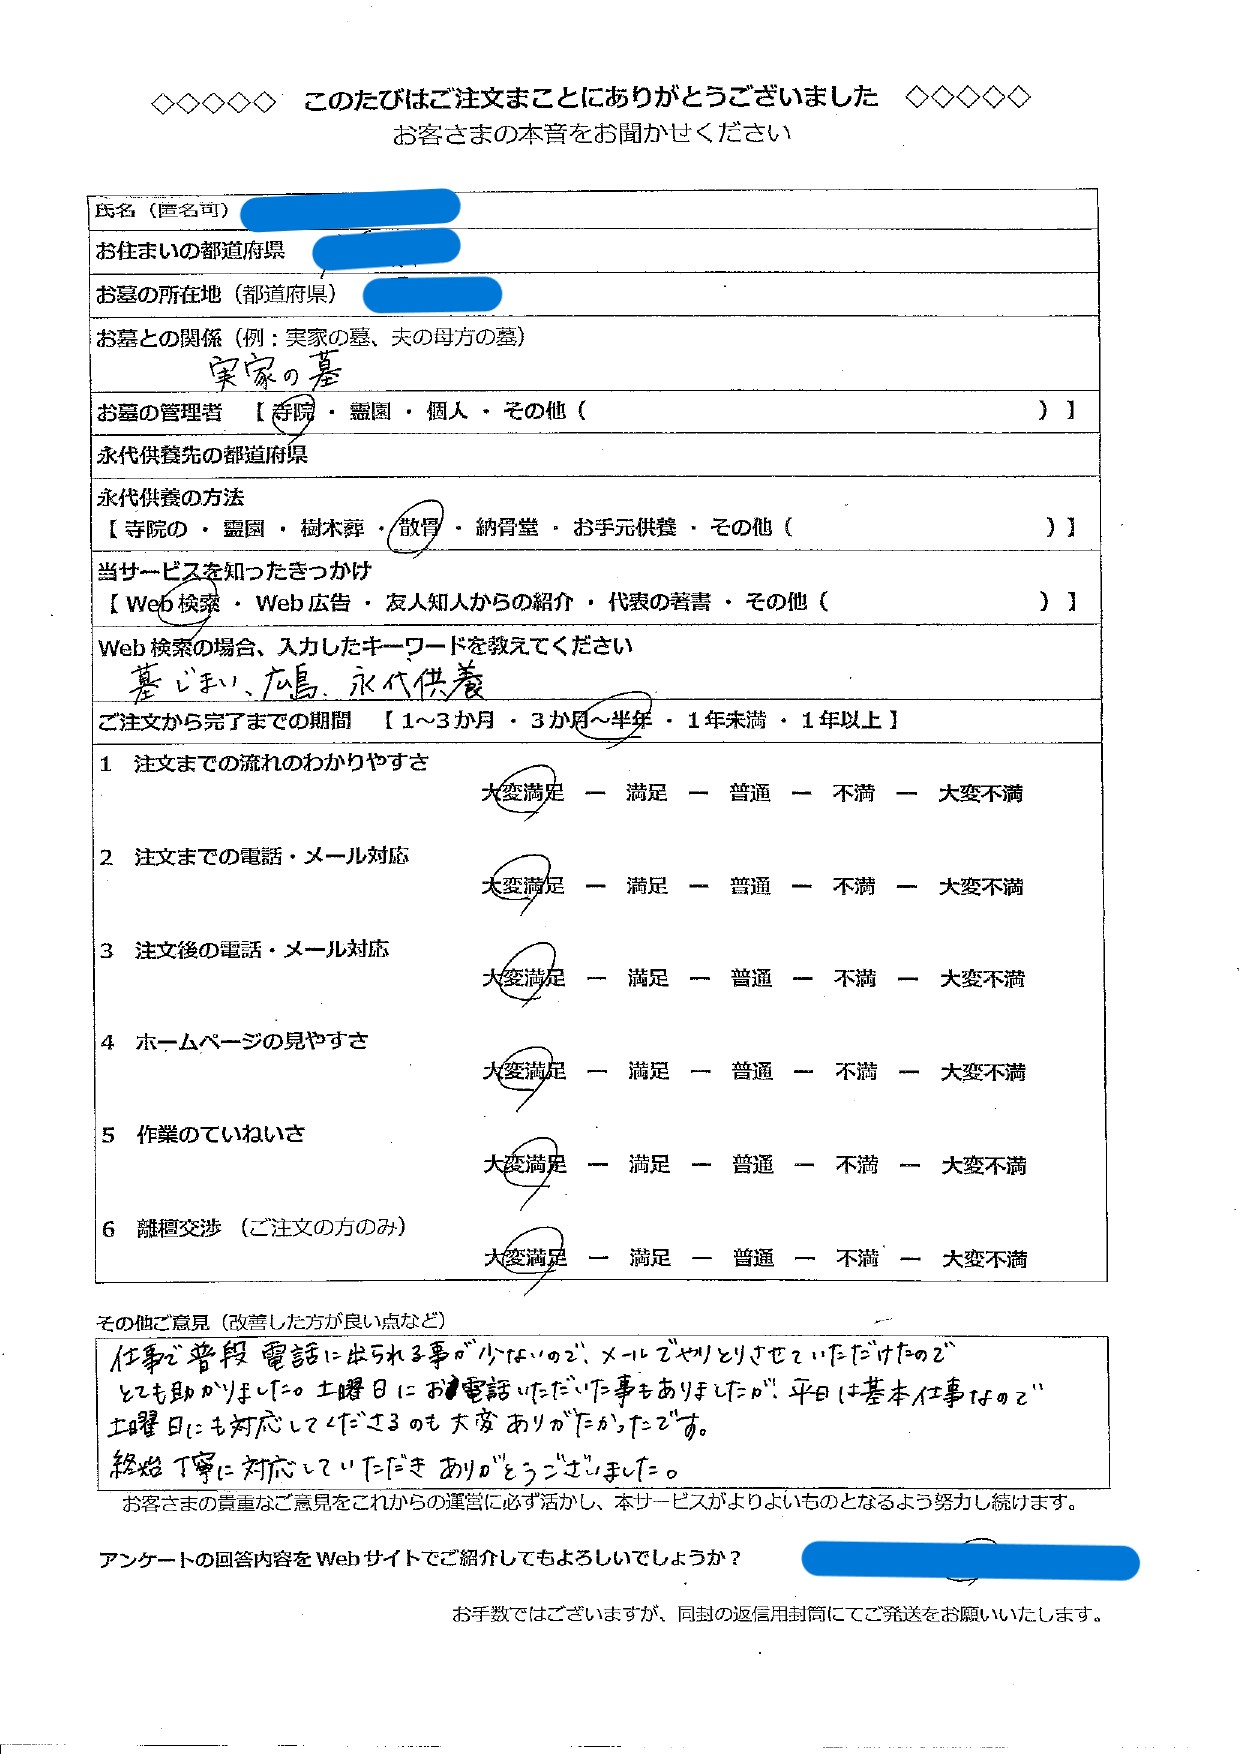 ◇◇◇◇◇ このたびはご注文まことにありがとうございました ◇◇◇◇◇
お客さまの本音をお聞かせください
氏名（匿名可）
お住まいの都道府県
お墓の所在地（都道府県）
お墓との関係（例：実家の墓、夫の母方の墓）
実家の墓
お墓の管理者 【 寺院 ・ 霊園 ・ 個人 ・ その他（ ） 】
永代供養先の都道府県
永代供養の方法
【 寺院の ・ 霊園 ・ 樹木葬 ・ 散骨 ・ 納骨堂 ・ お手元供養 ・ その他（ ）】
当サービスを知ったきっかけ
【 Web検索 ・ Web広告 ・ 友人知人からの紹介 ・ 代表の著書 ・ その他（ ） 】
Web検索の場合、入力したキーワードを教えてください
墓じまい、広島、永代供養
ご注文から完了までの期間 【 1～3か月 ・ 3か月～半年 ・ 1年未満 ・ 1年以上 】
1 注文までの流れのわかりやすさ
大変満足 ー 満足 ー 普通 ー 不満 ー 大変不満
2 注文までの電話・メール対応
大変満足 ー 満足 ー 普通 ー 不満 ー 大変不満
3 注文後の電話・メール対応
大変満足 ー 満足 ー 普通 ー 不満 ー 大変不満
4 ホームページの見やすさ
大変満足 ー 満足 ー 普通 ー 不満 ー 大変不満
5 作業のていねいさ
大変満足 ー 満足 ー 普通 ー 不満 ー 大変不満
6 離檀交渉 （ご注文の方のみ）
大変満足 ー 満足 ー 普通 ー 不満 ー 大変不満
その他ご意見（改善した方が良い点など）
仕事で普段 電話に出られる事が少ないので、メールでやりとりさせていただけたので
とても助かりました。土曜日にお電話いただいた事もありましたが、平日は基本仕事なので
土曜日にも対応してくださるのも大変ありがたかったです。
終始丁寧に対応していただきありがとうございました。
お客さまの貴重なご意見をこれからの運営に必ず活かし、本サービスがよりよいものとなるよう努力し続けます。
アンケートの回答内容をWebサイトでご紹介してもよろしいでしょうか？
お手数ではございますが、同封の返信用封筒にてご発送をお願いいたします。